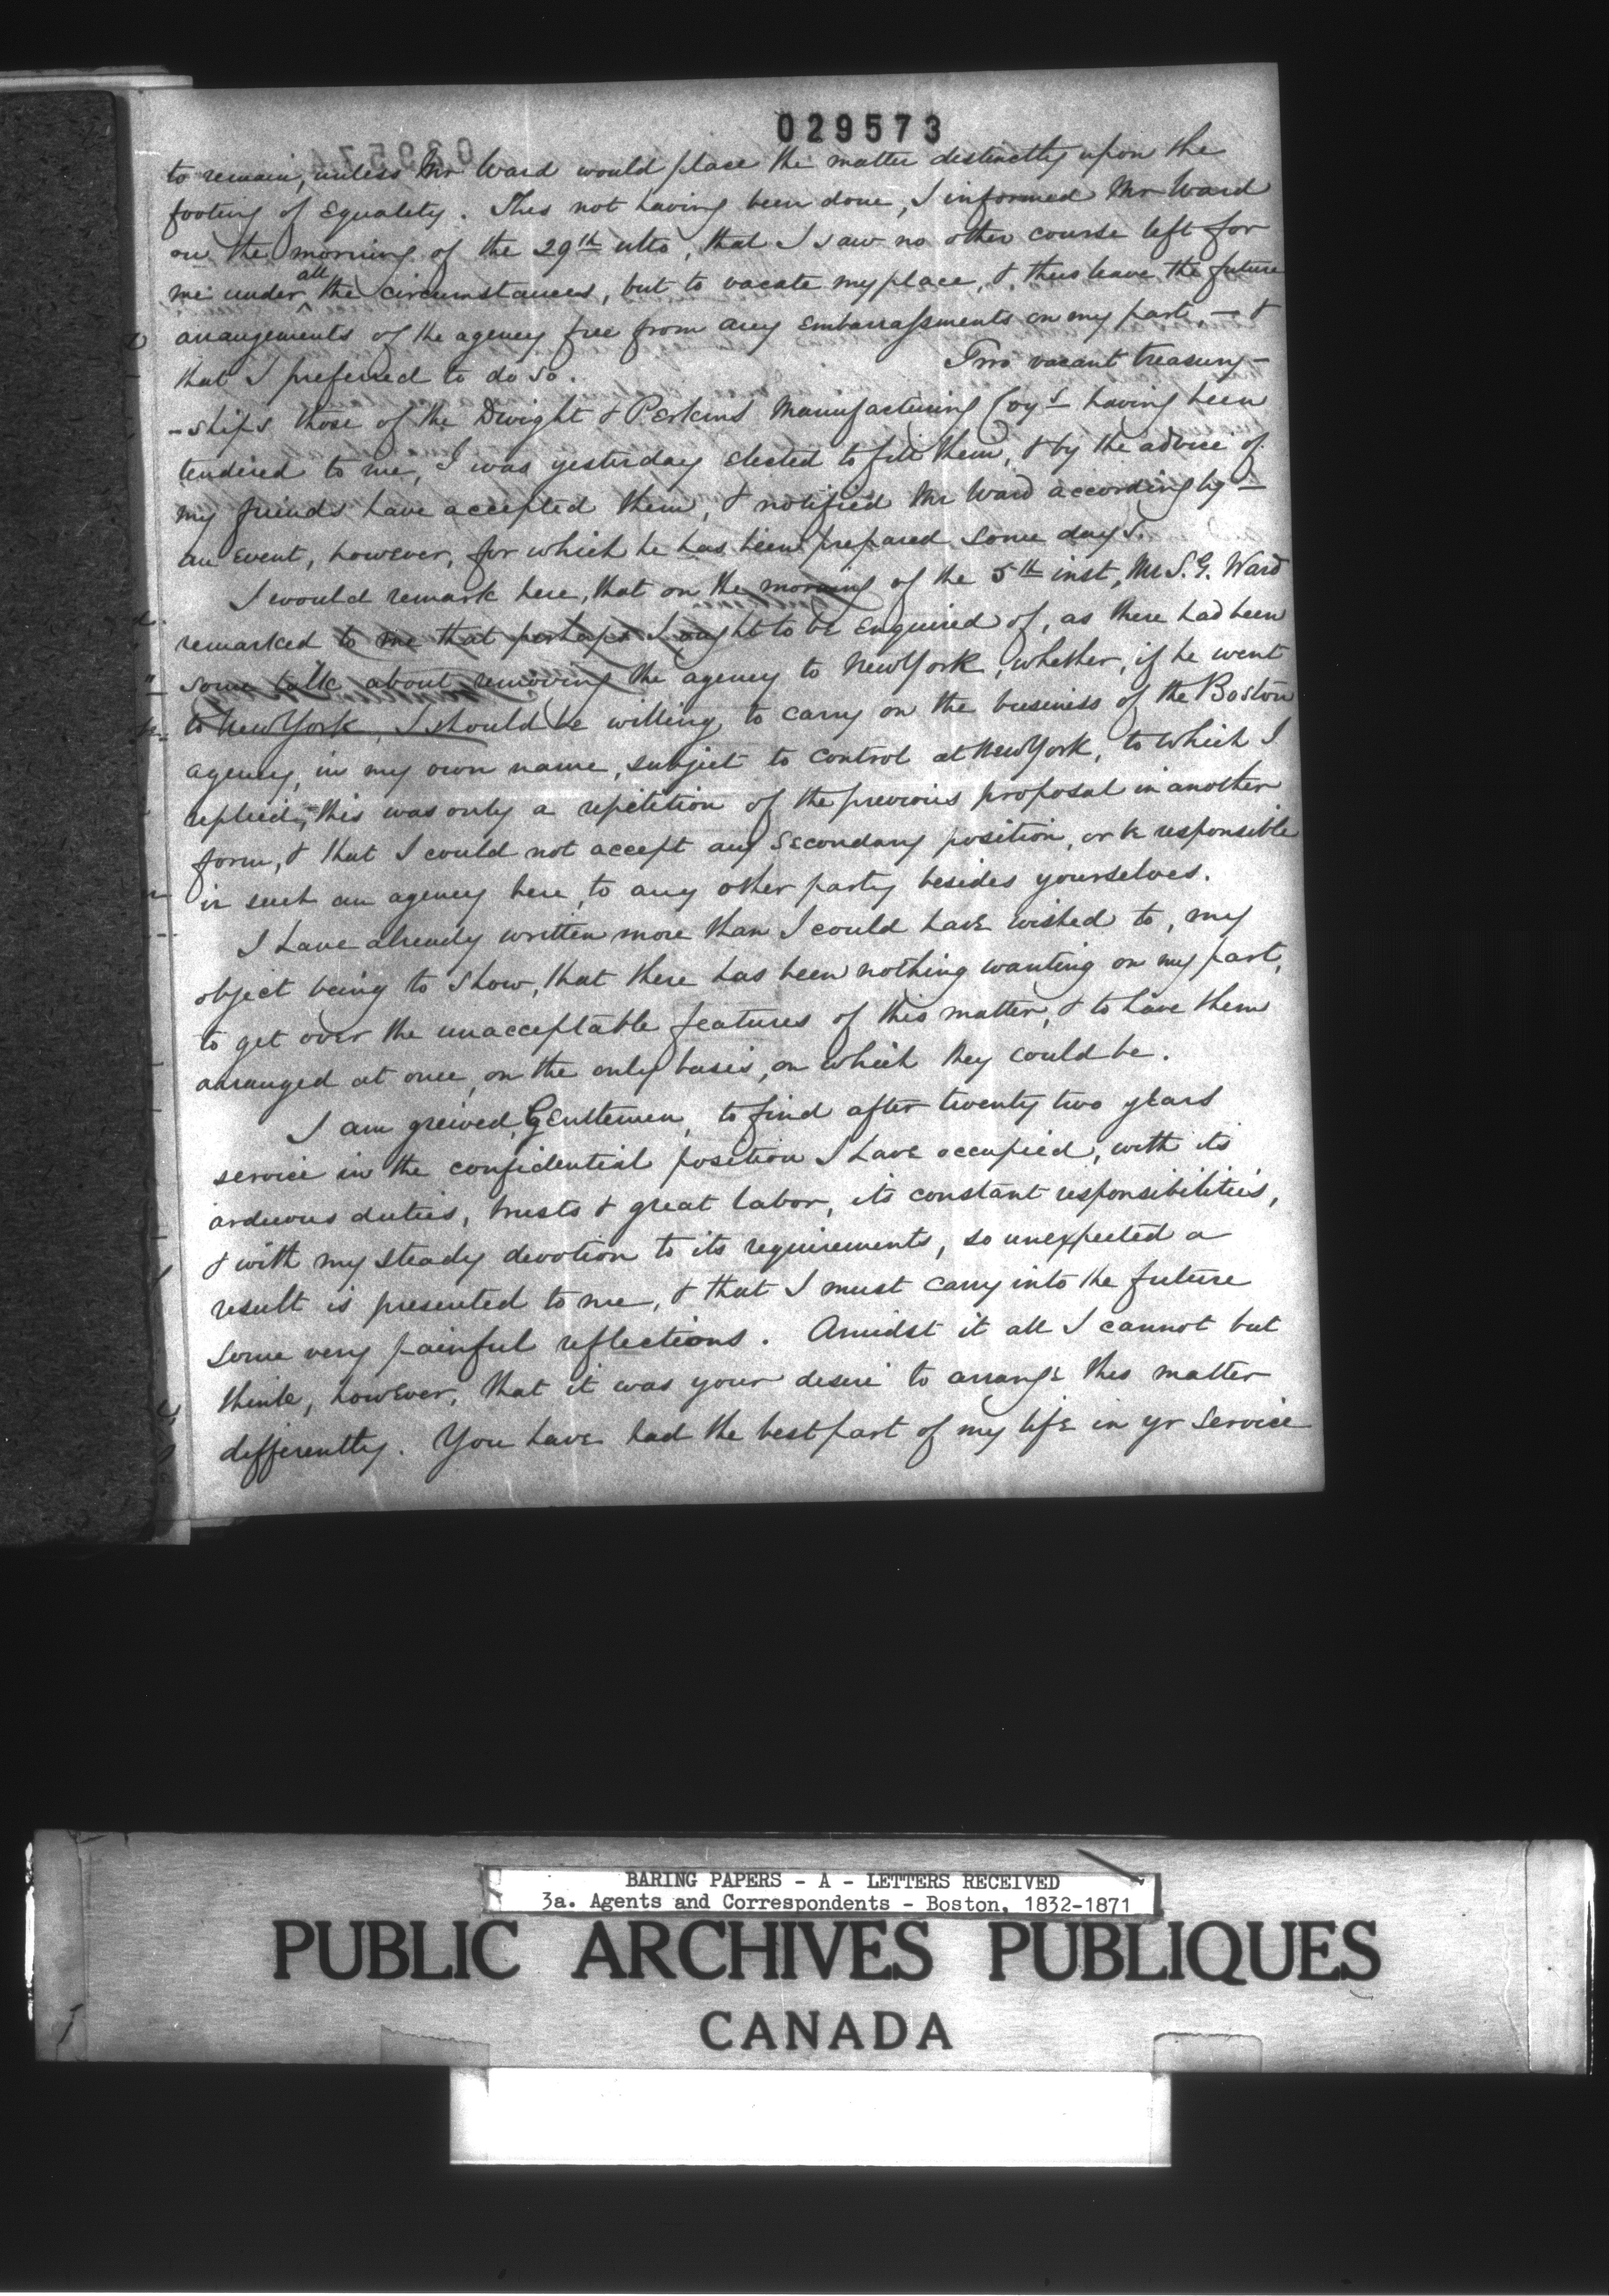 029573
to remain, unless Mr Ward would place the matter distinctly upon the
footing of Equality. This not having been done, I informed Mr Ward
on the morning of the 29th ulto, that I saw no other course left for
me under all the circumstances, but to vacate my place, & thus leave the future
arrangements of the agency free from any Embarrassments on my part, — &
that I preferred to do so. Two vacant treasury-
-ships those of the Dwight & Perkins Manufacturing Coys having been
tendered to me, I was yesterday Elected to fill them, & by the advice of
my friends have accepted them, & notified Mr Ward accordingly —
an Event, however, for which he has been prepared some days.
I would remark here, that on the morning of the 5th inst, Mr S. G. Ward
remarked to me that perhaps I ought to be Enquired of, as there had been
some talk about removing the agency to New York, whether, if he went
to New York, I should be willing to carry on the business of the Boston
agency, in my own name, subject to control at New York, to which I
replied, this was only a repetition of the previous proposal in another
form, & that I could not accept any Secondary position, or be responsible
in such an agency here, to any other party besides yourselves.
I have already written more than I could have wished to, my
object being to show, that there has been nothing wanting on my part,
to get over the unacceptable features of this matter, & to have them
arranged at once, on the only basis, on which they could be.
I am greived, Gentlemen, to find after twenty two years
service in the confidential position I have occupied, with its
arduous duties, trusts & great labor, its constant responsibilities,
& with my steady devotion to its requirements, so unexpected a
result is presented to me, & that I must carry into the future
some very painful reflections. Amidst it all I cannot but
think, however, that it was your desire to arrange this matter
differently. You have had the best part of my life in yr Service
BARING PAPERS - A - LETTERS RECEIVED
3a. Agents and Correspondents - Boston, 1832-1871
PUBLIC ARCHIVES PUBLIQUES
CANADA